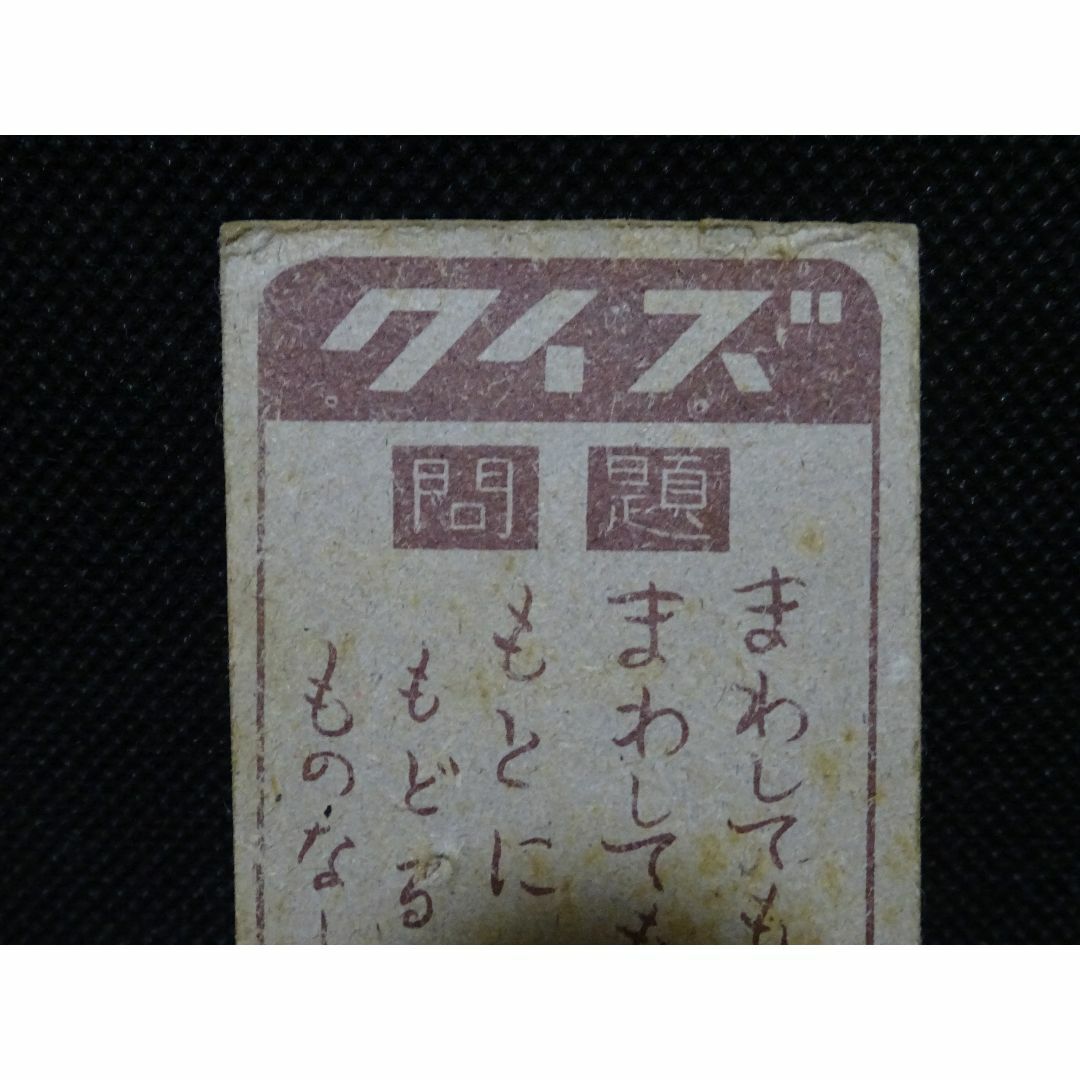 クイズ
問題
まわしても
まわしても
もとに
もどる
ものな